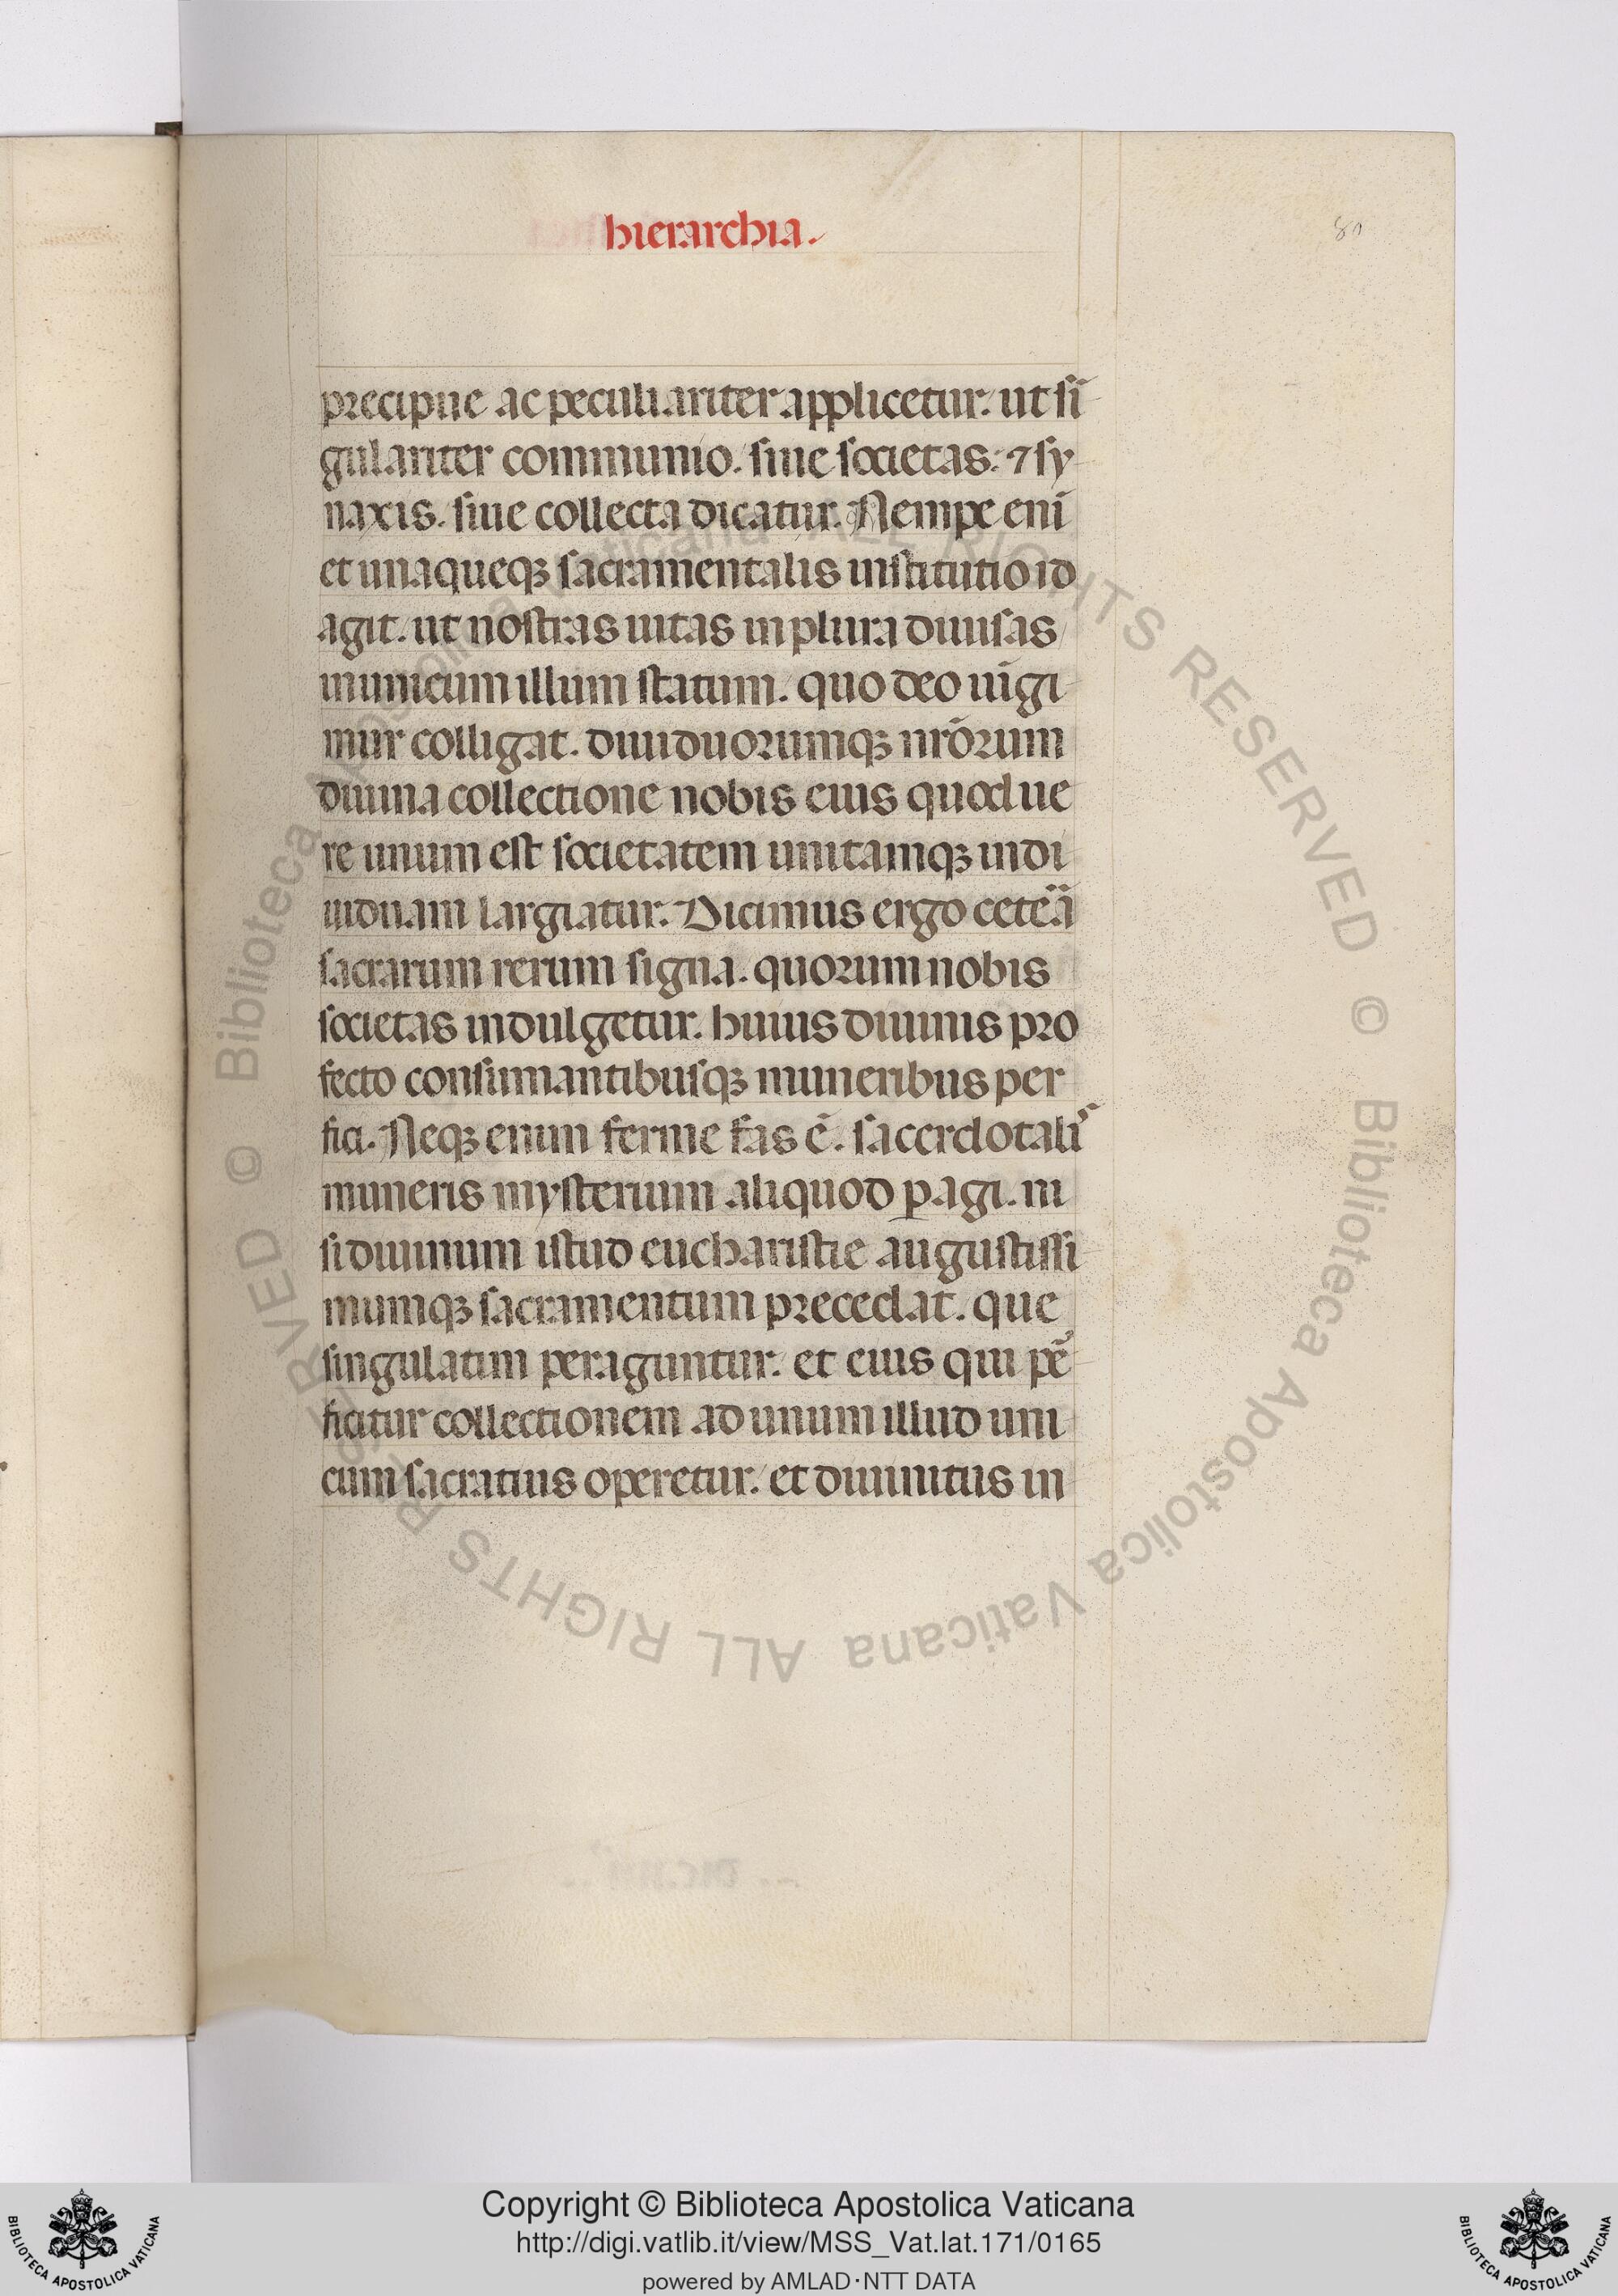 hierarchia.
80
precipue ac peculiariter applicetur. ut sī
gulariter communio. siue societas: ⁊ sy
naxis. siue collecta dicatur. Nempe enī
et unaqueqꝫ sacramentalis institutio id
agit. ut nostras uitas in plura diuisas
in unicum illum statum. quo deo iūgi
mur colligat. diuiduorumqꝫ nr̄orum
diuina collectione nobis eius quod ue
re unum est societatem unitamqꝫ indi
uiduam largiatur. Dicimus ergo cetēa
sacrarum rerum signa. quorum nobis
societas indulgetur. huius diuinis pro
fecto consumantibusqꝫ muneribus per
fici. Neqꝫ enim ferme fas ē. sacerdotali᾿
muneris mysterium aliquod ꝑagi. ni
si diuinum istud eucharistie augustissi
mumqꝫ sacramentum precedat. que
singulatim peraguntur. et eius qui pe᾿
ficitur collectionem ad unum illud uni
cum sacratius operetur. et diuinitus in
© Biblioteca Apostolica Vaticana ALL RIGHTS RESERVED © Biblioteca Apostolica Vaticana ALL RIGHTS RESERVED
Copyright © Biblioteca Apostolica Vaticana
http://digi.vatlib.it/view/MSS_Vat.lat.171/0165
powered by AMLAD·NTT DATA
BIBLIOTECA APOSTOLICA VATICANA
BIBLIOTECA APOSTOLICA VATICANA